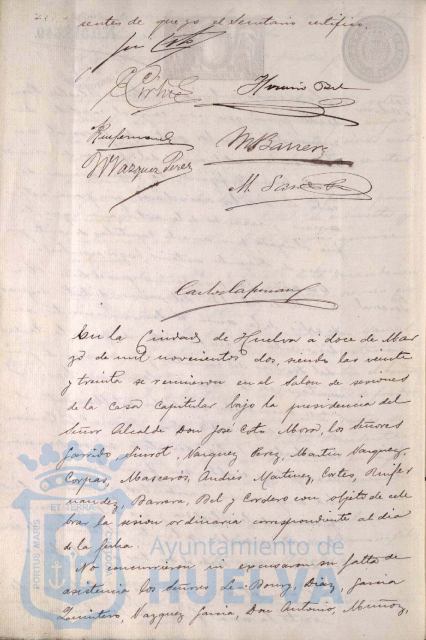 sentes de que yo el Secretario certifico.
Horacio Bel
Ruifernandez
M Barrera
V Vazquez Perez
En la Ciudad de Huelva a doce de Mar
zo de mil novecientos dos, siendo las veinte
y treinta se reunieron en el Salon de sesiones
de la casa Capitular bajo la presidencia del
Señor Alcalde Don José Coto Mora, los Señores
Garrido, Vazquez Perez, Martin Vazquez,
Corpas, Mascarós, Andres Martinez, Cortes, Ruifer
nandez, Barrera, Bel y Cordero con objeto de cele
brar la sesion ordinaria correspondiente al dia
de la fecha.
No concurrieron ni excusaron su falta de
asistencia los Señores Le Bourg, Diaz, Garcia
Quintero, Vazquez Garcia, Don Antonio, Muñoz,
PORTUS MARIS
ET TERRÆ
Ayuntamiento de
HUELVA